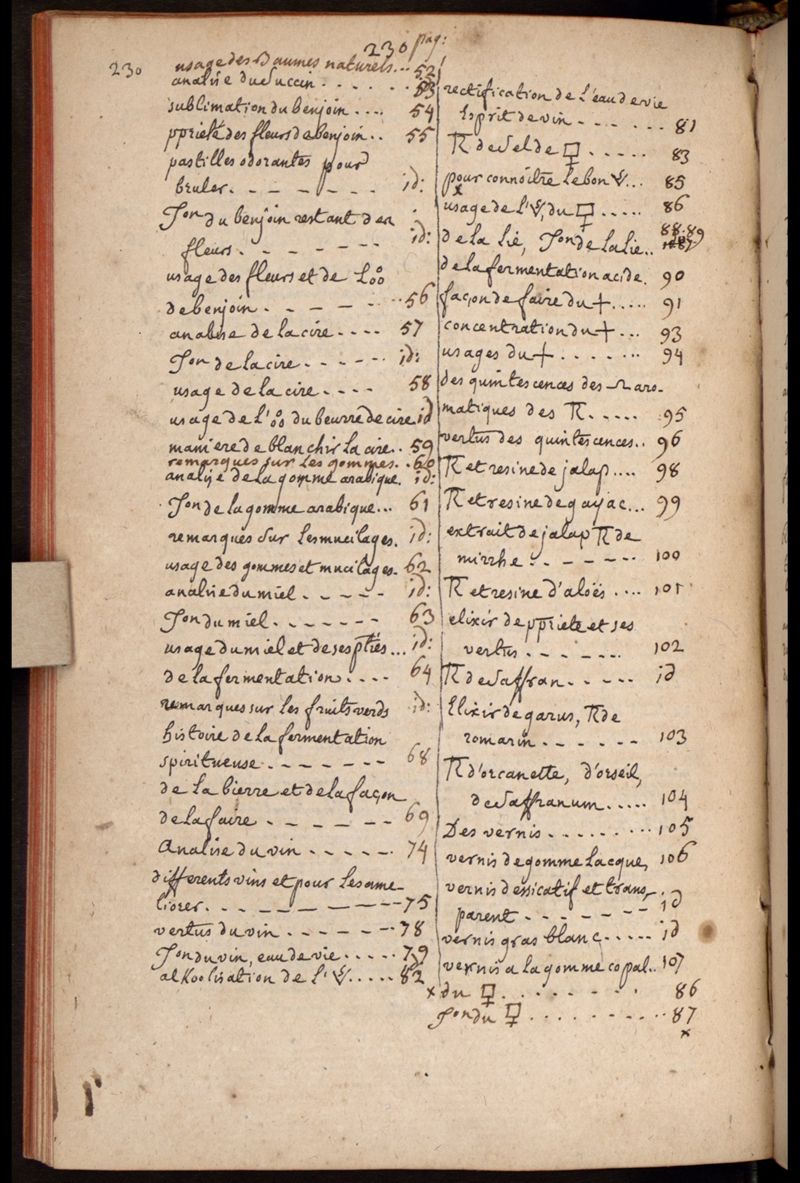 230
230 pag:
usage des Baumes naturels... 52
analise du Succin....... 53
sublimation du benjoin.... 54
pprieté des fleurs de benjoin.. 55
pastilles odorantes pour
bruler. - - - - - - - id:
du benjoin restant des
fleurs. - - - - - - id:
usage des fleurs et de l'
de benjoin. - - - - .. 56
analise de la cire.... 57
de la cire. - - - - - id:
usage de la cire.... 58
usage de l' du beurre de cire id
maniere de blanchir la cire.. 59
remarques sur les gommes.. 60
analise de la gomme arabique. id:
de la gomme arabique... 61
remarques sur les mucilages. id:
usage des gommes et mucilages. 62
analise du miel. - - - - id:
du miel. - - - - - - 63
usage du miel et de ses ptiés... id:
de la fermentations.... 64
remarques sur les fruits verds id:
histoire de la fermentation
spiritueuse. - - - - - - 68
de la bierre et de la façon
de la faire. - - - - - - 69
Analise du vin. - - - - - 74
differents vins et pour les ame-
liorer. - - - - - - - 75
vertus du vin. - - - - - - 78
du vin, eau de vie..... 79
alkoolisation de l'..... 82
rectification de l'eau de vie
Esprit de vin. - - - ... 81
de Sel de ♀..... 83
pour connoître le bon... 85
usage de l', du ♀..... 86
de la lie, de la lie.. 88.89
de la fermentation acide. 90
façon de faire du +..... 91
concentration du +... 93
usages du +....... 94
des quintescences des aro-
matiques des..... 95
vertus des quintescences.. 96
et resine de jalap.... 98
et resine de gayac... 99
extrait de jalap de
mirrhe. - - - - - - 100
et resine d'aloës.... 101
elixir de ppriete et ses
vertus. - - - - ... 102
de Saffran. - - - - - id
Elixir de garus, de
romarin. - - - - - - 103
d'orcanette, d'orseil,
de Saffranum..... 104
Des vernis........ 105
vernis de gomme lacque, 106
vernis dessicatif et trans-
parent. - - - - - - id
vernis gras blanc..... id
vernis a la gomme copal.. 107
x du ♀........ 86
du ♀......... 87
x